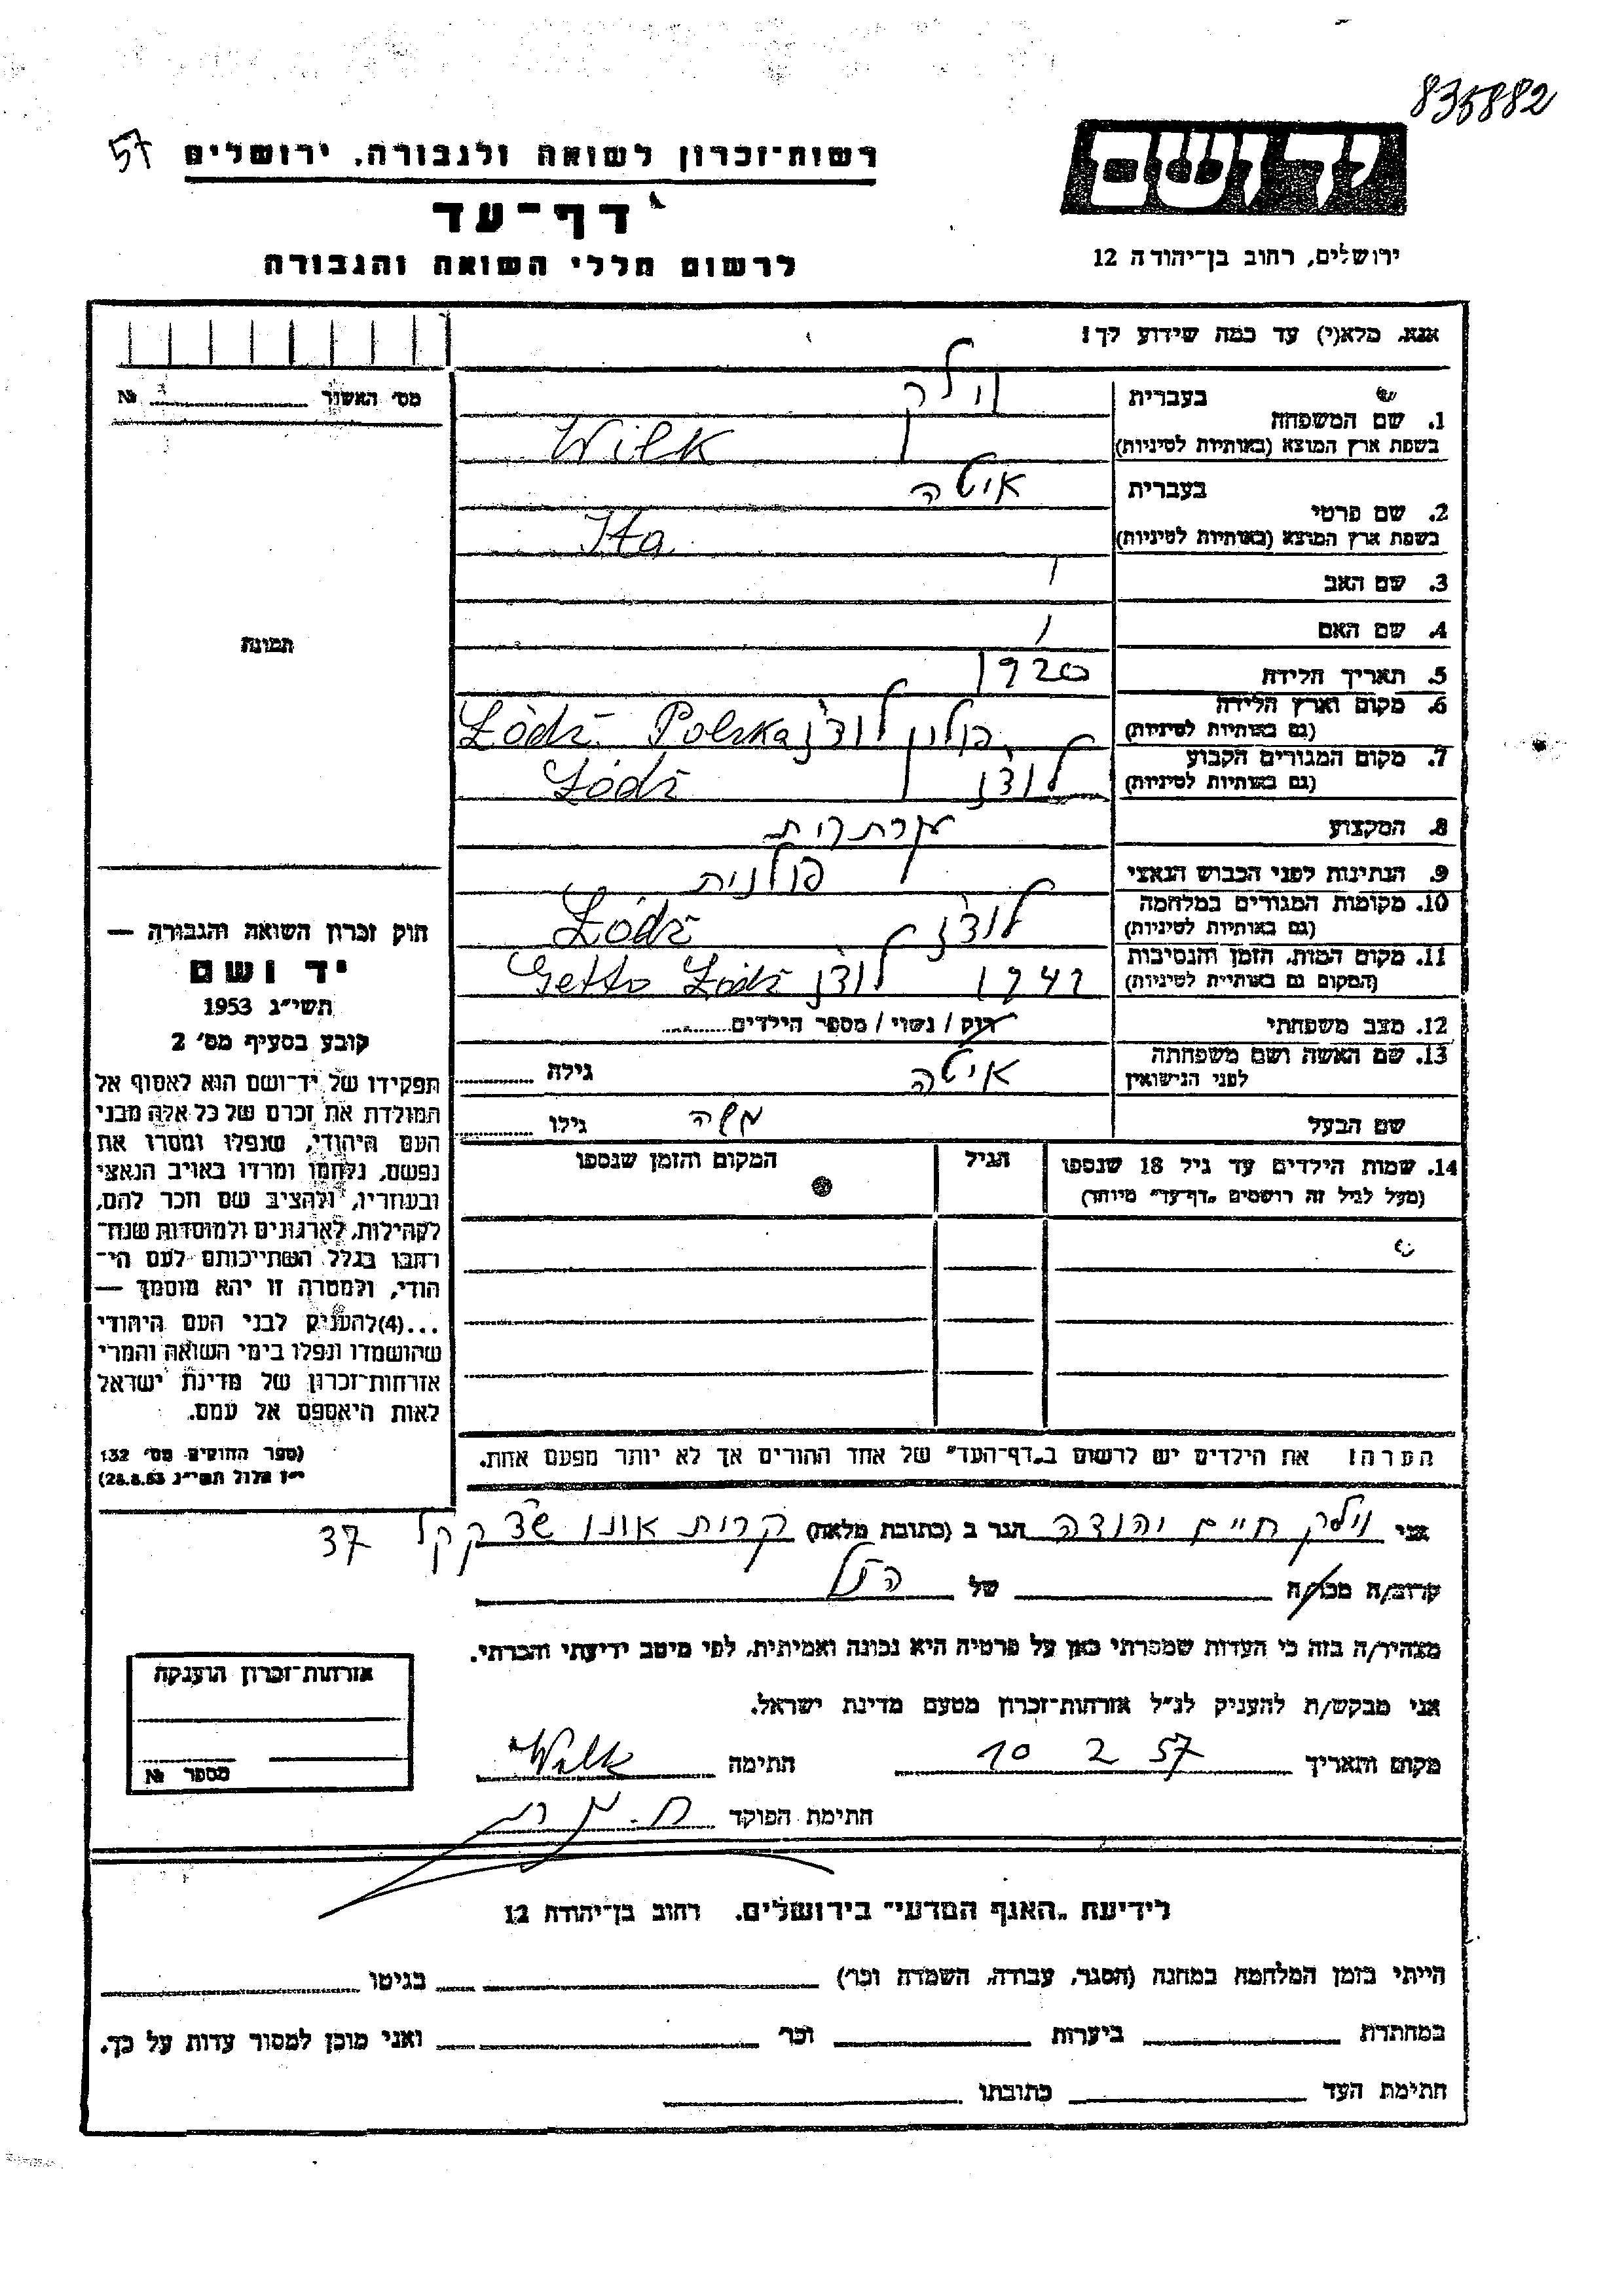 835882
57
רשות־זכרון לשואה ולגבורה, ירושלים
יד ושם
דף־עד
לרשום חללי השואה והגבורה
ירושלים, רחוב בן־יהודה 12
אנא, מלא(י) עד כמה שידוע לך!
מס' האשור № 
בעברית וילק
1. שם המשפחה
בשפת ארץ המוצא (באותיות לטיניות) Wilk
בעברית איטה
2. שם פרטי
בשפת ארץ המוצא (באותיות לטיניות) Ita
3. שם האב /
4. שם האם /
תמונה
5. תאריך הלידה 1920
6. מקום וארץ הלידה
(גם באותיות לטיניות) פולין לודז' Łódź Polska
7. מקום המגורים הקבוע
(גם באותיות לטיניות) לודז' Łódź
8. המקצוע
9. הנתינות לפני הכבוש הנאצי פולנית
10. מקומות המגורים במלחמה
(גם באותיות לטיניות) לודז' Łódź
11. מקום המות, הזמן והנסיבות
(המקום גם באותיות לטיניות) לודז' Getto Łódź
12. מצב משפחתי רווק / נשוי / מספר הילדים
13. שם האשה ושם משפחתה
לפני הנישואין איטה גילה
שם הבעל משה גילו
14. שמות הילדים עד גיל 18 שנספו
(מעל לגיל זה רושמים „דף־עד" מיוחד)
הגיל
המקום והזמן שנספו
הערה! את הילדים יש לרשום ב„דף־העד" של אחד ההורים אך לא יותר מפעם אחת.
חוק זכרון השואה והגבורה —
יד ושם
תשי"ג 1953
קובע בסעיף מס' 2
תפקידו של יד־ושם הוא לאסוף אל
המולדת את זכרם של כל אלה מבני
העם היהודי, שנפלו ומסרו את
נפשם, נלחמו ומרדו באויב הנאצי
ובעוזריו, ולהציב שם וזכר להם,
לקהילות, לארגונים ולמוסדות שנח־
רבו בגלל השתייכותם לעם הי־
הודי, ולמטרה זו יהא מוסמך —
...(4)להעניק לבני העם היהודי
שהושמדו ונפלו בימי השואה והמרי
אזרחות־זכרון של מדינת ישראל
לאות היאספם אל עמם.
(ספר החוקים מס' 132
י"ז אלול תשי"ג 28.8.53)
אני וילק חיים יהודה הגר ב (כתובת מלאה) קרית אונו שד קקל 37
קרוב/ה מכר/ה של הנ"ל
מצהיר/ה בזה כי העדות שמסרתי כאן על פרטיה היא נכונה ואמיתית, לפי מיטב ידיעתי והכרתי.
אני מבקש/ת להעניק לנ"ל אזרחות־זכרון מטעם מדינת ישראל.
מקום ותאריך 10 2 57 חתימה Wilk
חתימת הפוקד
אזרחות־זכרון הוענקה
מספר №
לידיעת „האגף המדעי" בירושלים, רחוב בן־יהודה 12
הייתי בזמן המלחמה במחנה (הסגר, עבודה, השמדה וכו') בגיטו
במחתרת ביערות וכו' ואני מוכן למסור עדות על כך.
חתימת העד כתובתו